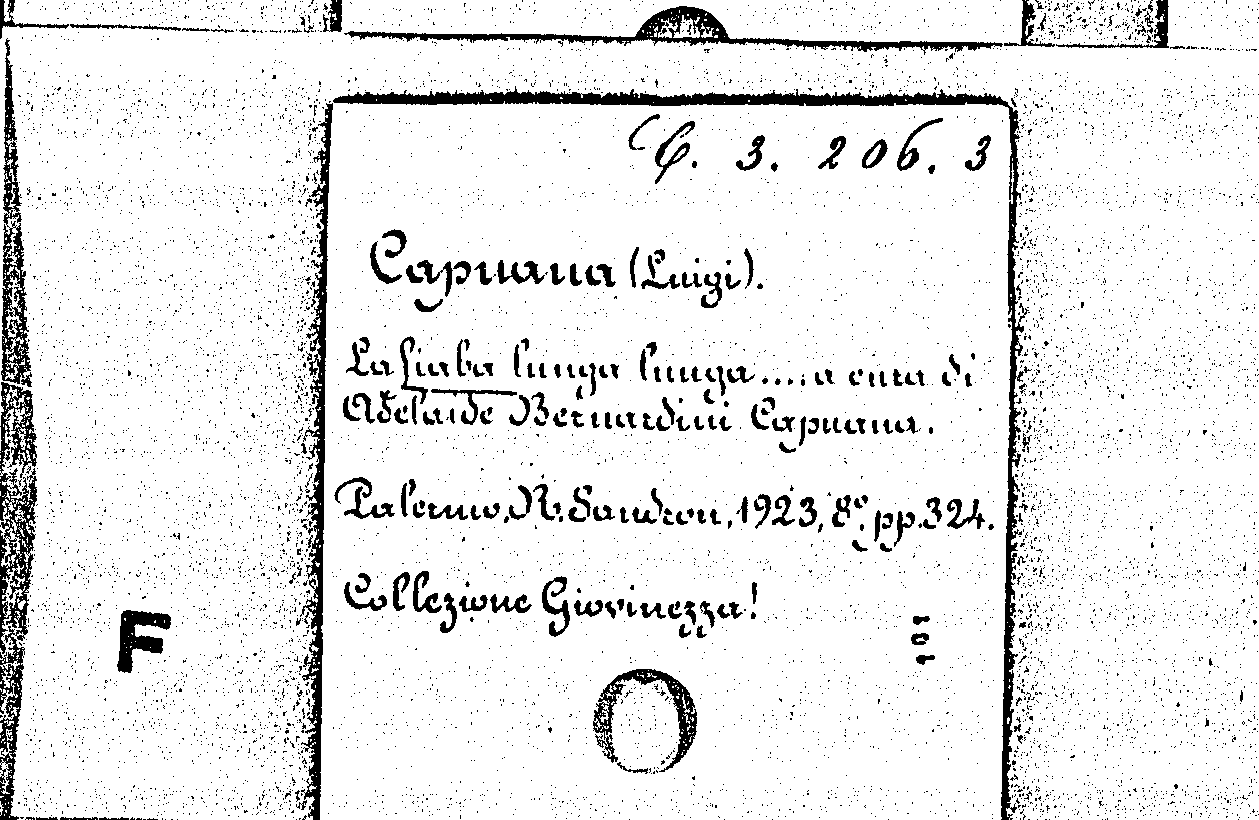 C. 3. 206. 3
Capuana (Luigi).
La fiaba lunga lunga.... a cura di
Adelaide Bernardini Capuana.
Palermo, R. Sandron, 1923, 8º, pp. 324.
Collezione Giovinezza!
101
F